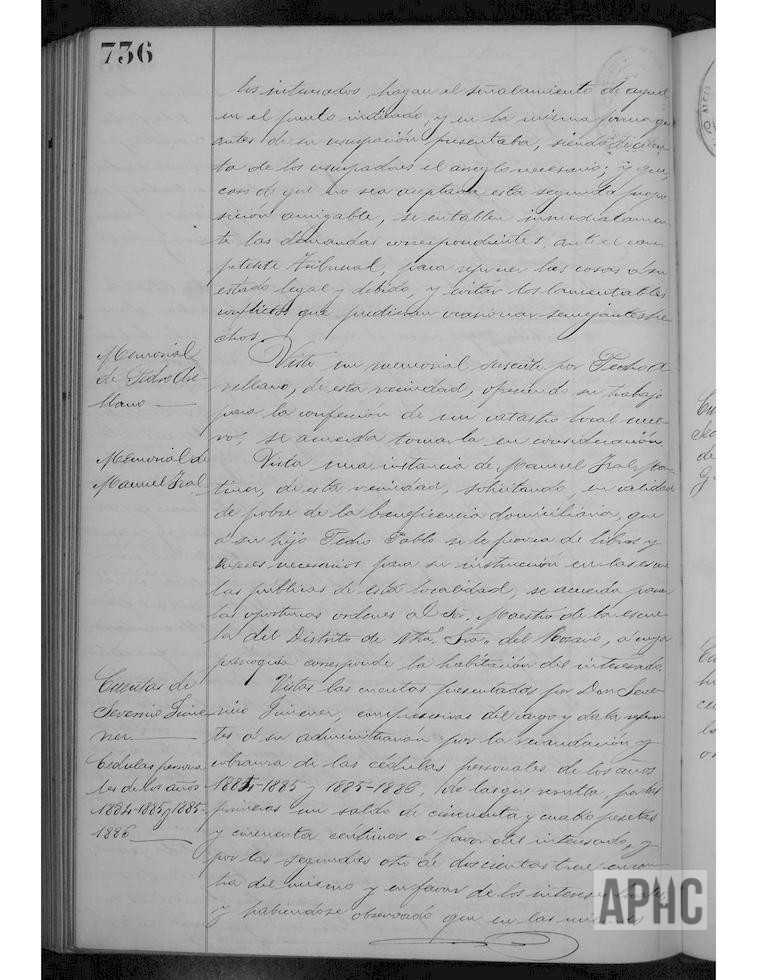 736
los interesados, hagan el señalamiento de aquel
en el punto indicado, y en la misma forma que
antes de su usurpación presentaba, siendo de cuen-
ta de los usurpadores el arreglo necesario; y que
caso de que no sea aceptada esta segunda propo-
sición amigable, se entablen inmediatamen-
te las demandas correspondientes, ante el com-
petente Tribunal, para reponer las cosas á su
estado legal y debido, y evitar los lamentables
conflictos que pudieran ocasionar semejantes he-
chos.
Memorial
de Pedro Are-
llano
Visto un memorial suscrito por Pedro A-
rellano, de esta vecindad, ofreciendo su trabajo
para la confección de un catastro local nue-
vo, se acuerda tomarla en consideración.
Memorial de
Manuel Jral
Vista una instancia de Manuel Jral Mar-
tinez, de esta vecindad, solicitando, en calidad
de pobre de la beneficencia domiciliaria, que
a su hijo Pedro Pablo se le provea de libros y
enseres necesarios para su instrucción en las escue-
las públicas de esta localidad, se acuerda pasar
las oportunas ordenes al Sr. Maestro de la escue-
la del Distrito de Ntra. Sra. del Rosario, a cuya
parroquia corresponde la habitación del interesado.
Cuentas de
Severino Jime-
nez
Cédulas persona-
les de los años
1884-1885 y 1885-
1886
Vistas las cuentas presentadas por Don Seve-
rino Jimenez, comprensivas del cargo y data referen-
tes á su administración por la recaudación y
cobranza de las cédulas personales de los años
1884-1885 y 1885-1886, de las que resulta, por las
primeras un saldo de cincuenta y cuatro pesetas
y cincuenta céntimos á favor del interesado, y
por las segundas otro de doscientas trece en con-
tra del mismo y en favor de los intereses locales
y habiendose observado que en las mismas
APHC